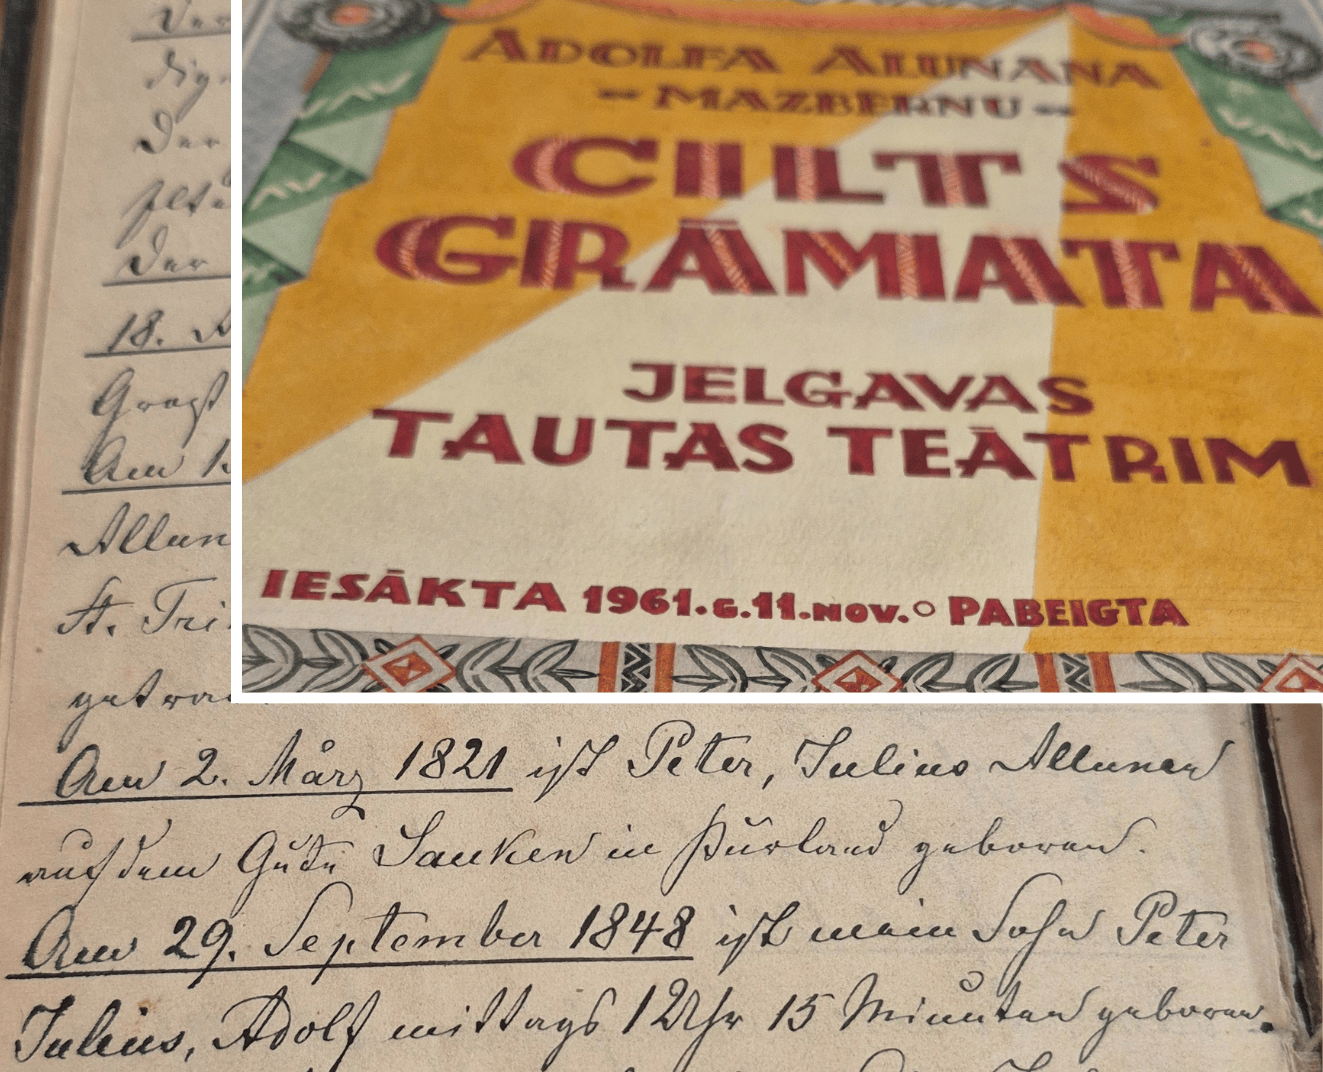 ADOLFA ALUNANA
MAZBĒRNU
CILTS
GRĀMATA
JELGAVAS
TAUTAS TEĀTRIM
IESĀKTA 1961.G.11.NOV. PABEIGTA
Der
18. A
Am 1
Allun
St. Tri
getra
Am 2. März 1821 ist Peter, Julius Allunan
auf dem Gute Sauken in Kurland geboren.
Am 29. September 1848 ist mein Sohn Peter
Julius, Adolf mittags 12 Uhr 15 Minuten geboren.